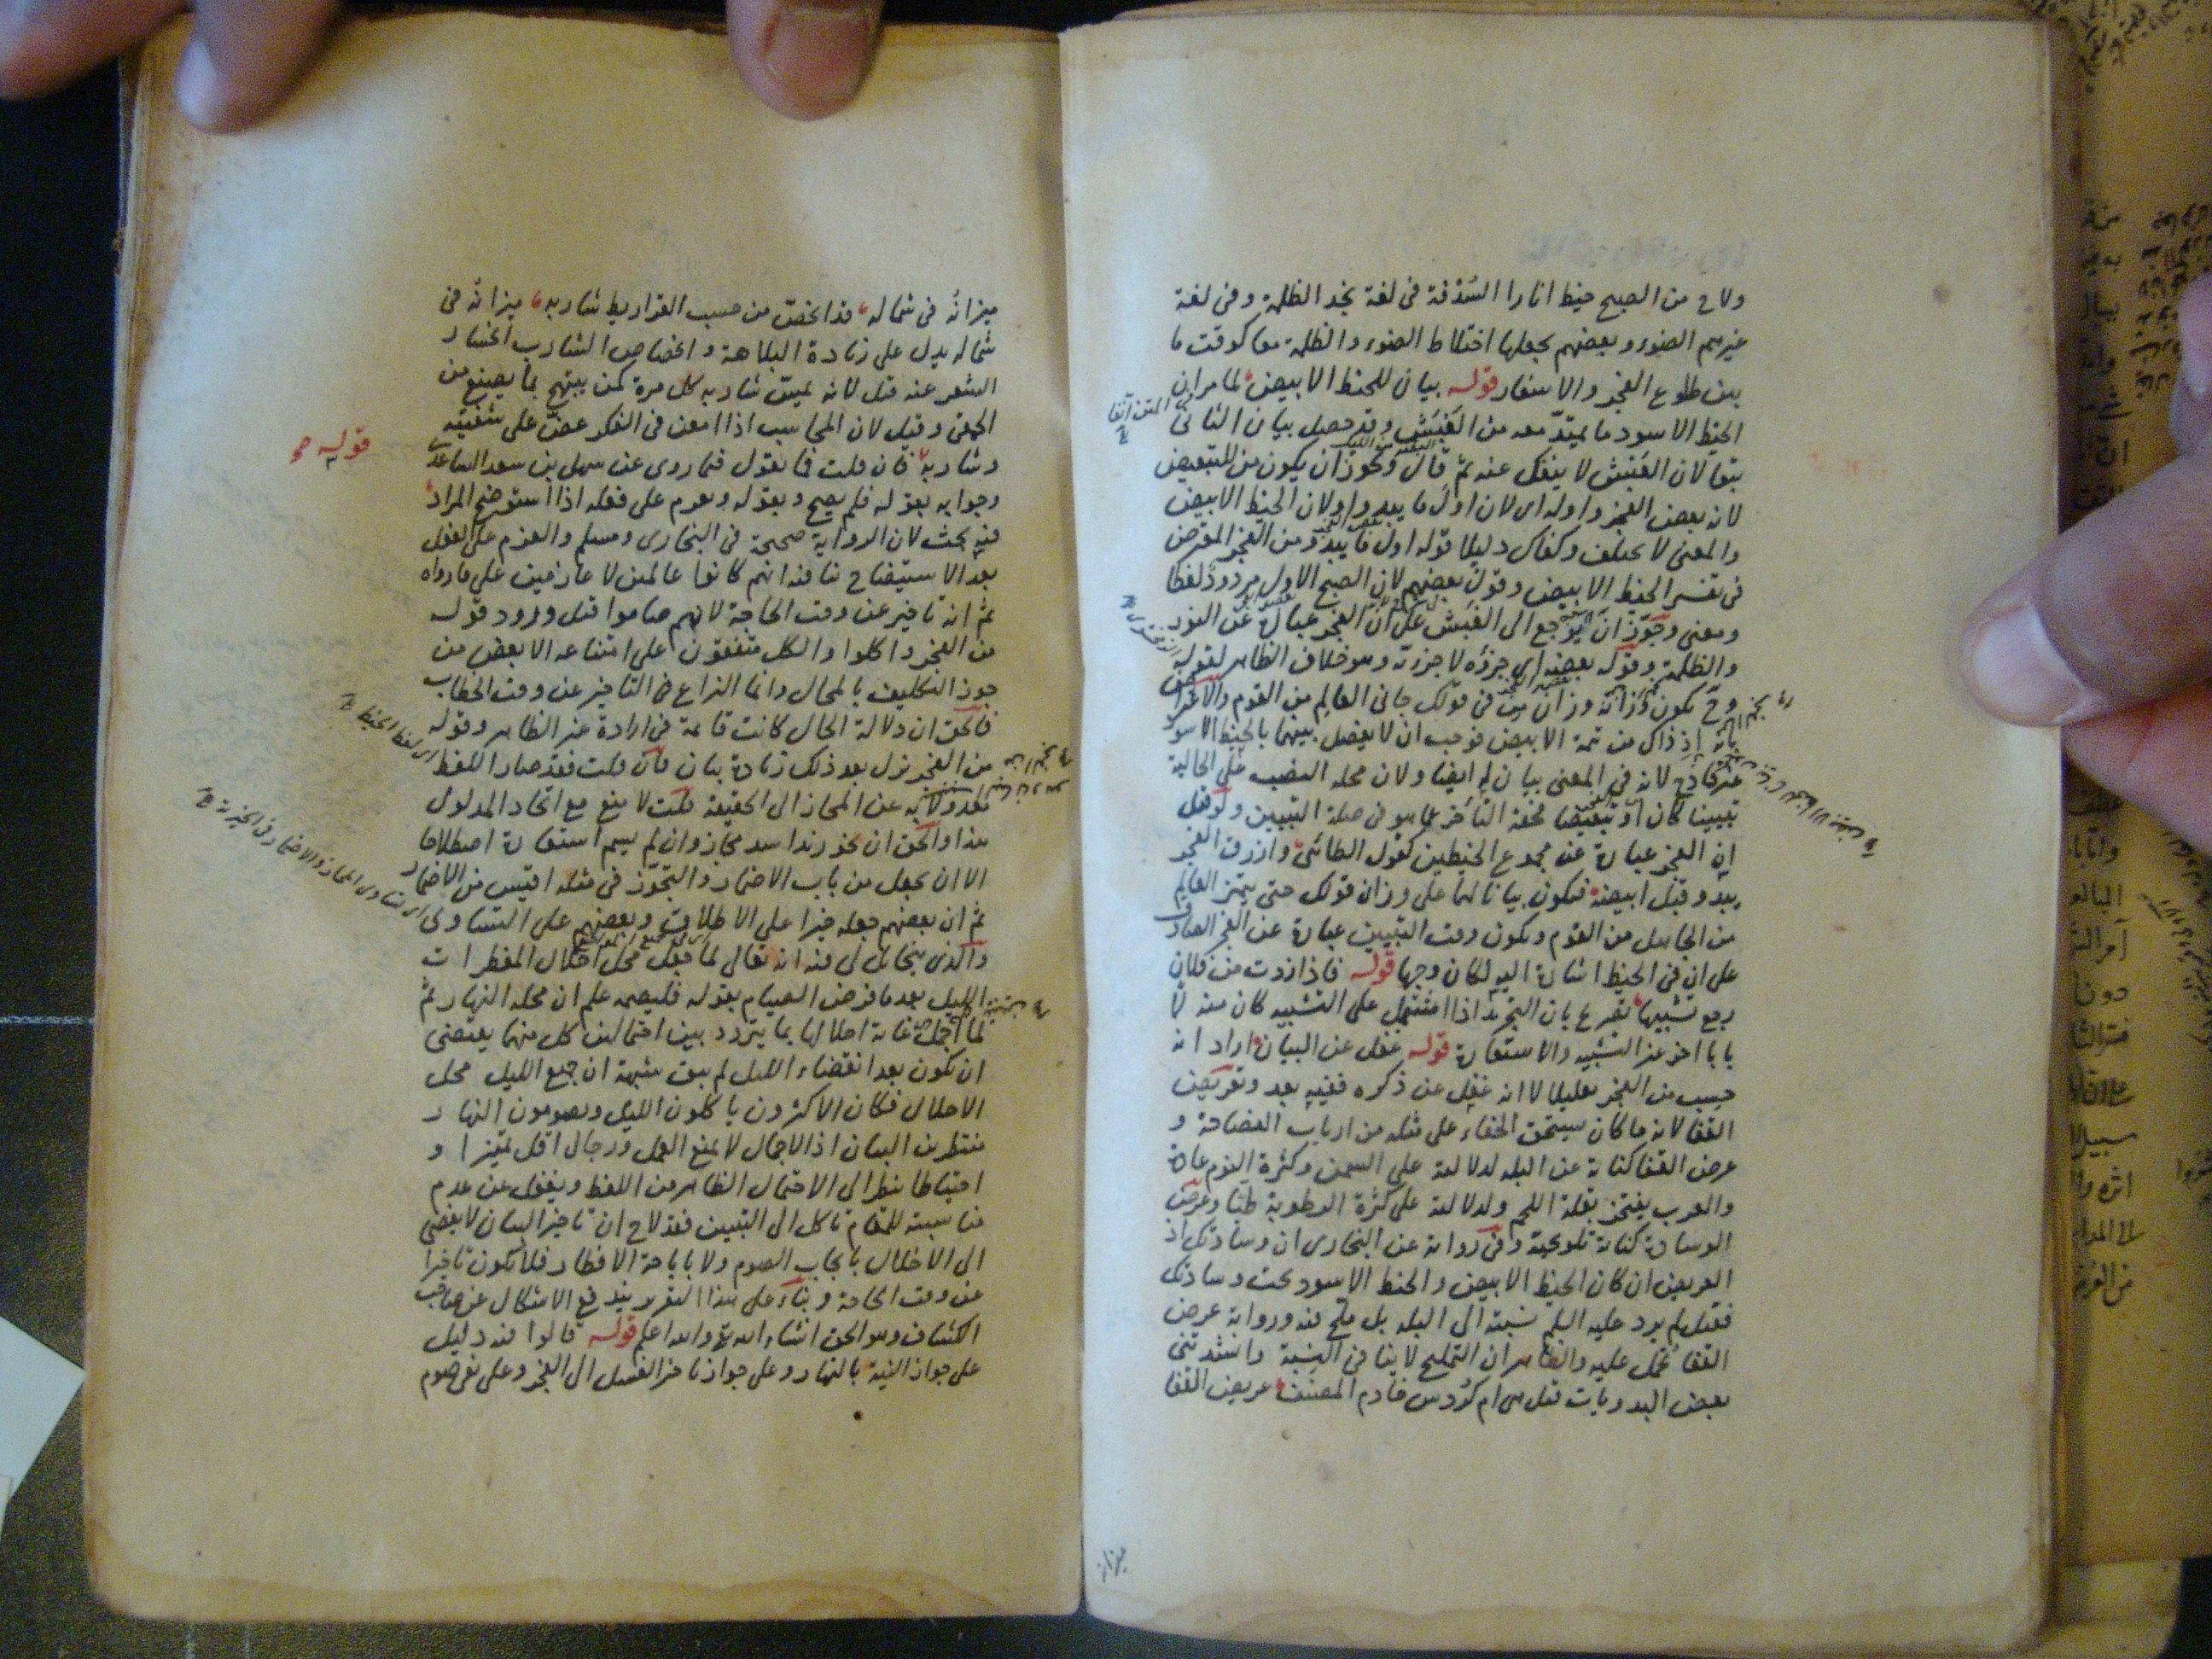 ولاح من الصبح خيط انارا السدفة فى لغة نجد الظلمة وفى لغة
غيرهم الضوء وبعضهم يجعلها اختلاط الضوء والظلمة معا كوقت ما
بين طلوع الفجر والاسفار قوله بيان للخيط الابيض لما مر ان
الخيط الاسود ما يمتد معه من الغبش وقد حصل بيان الثانى
تبعا لان الغبش لا ينفك عنه ثم قال ويجوز ان يكون من للتبعيض
لانه بعض الفجر واوله اى لان اول ما يبدو اولان الخيط الابيض
والمعنى لا يختلف وكفاك دليلا قوله اول ما يبدو من الفجر المعترض
فى تفسير الخيط الابيض وقول بعضهم لان الصبح الاول مردود لفظا
ومعنى وجوز ان يرجع الى الغبش على ان الفجر عبارة عن النور
والظلمة وقوله بعضه اى جزؤه لا جزئيه وهو خلاف الظاهر لقوله
وح يكون وزانه وزان من فى قولك جانى العالم من القوم والاعتراض
بانه اذ ذاك من تتمة الابيض فوجب ان لا يفصل بينهما بالخيط الاسود
غير قادح لانه فى المعنى بيان له ايضا ولان محله النصب على الحالية
تبيينا كان او تبعيضا فحقه التأخر عما هو فى صلة التبيين ولو قيل
ان الفجر عبارة عن مجموع الخيطين كقول الطائى وازرق الفجر
يبدو قبل ابيضه فيكون بيانا لهما على وزان قولك حتى يتميز العالم
من الجاهل من القوم ويكون وقت التبيين عبارة عن الفجر الصادق
على ان فى الخيط اشارة اليه لكان وجها قوله فاذا زدت من فلان
رجع تشبيها تفريع بان التجريد اذا اشتمل على التشبيه كان منه لا
بابا اخر غير التشبيه والاستعارة قوله غفل عن البيان اراد انه
حسب من الفجر تعليلا لا انه غفل عن ذكره ففيه بعد وتعريض
القفا لانه ما كان يستحق الخفاء على مثله من ارباب الفصاحة و
عرض القفا كناية عن البله لدلالته على السمن وكثرة النوم عادة
والعرب يفتخر بقلة اللحم ولدلالته على كثرة الرطوبة طبا وعرض
الوسادة كناية تلويحية وفى رواية عن البخارى ان وسادتك اذ
العريض ان كان الخيط الابيض والخيط الاسود تحت وسادتك
فقيل لم يرد عليه السلم نسبته الى البله بل ملح فيه ورواية عرض
القفا تحمل عليه والظاهر ان التمليح لا ينافى النسبة وانشدتنى
بعض البدويات قيل هى ام كردس خادم المصنف عريض القفا
ميزانه
ميزانه فى شماله قد انحص من حسب القراريط شاربه ميزانه فى
شماله يدل على زيادة البلاهة وانحصاص الشارب انحسار
الشعر عنه قيل لانه يمس شاربه كل مرة كمن يبتهج بما يصنع من
الحمقى وقيل لان المحاسب اذا امعن فى الفكر عض على شفتيه
وشاربه فان قلت فما تقول فيما روى عن سهل بن سعد الساعدى
قوله
وجوابه بقوله فلم يصح وبقوله ويعزم على فعله اذا استوضح المراد
فيه بحث لان الرواية صحيحة فى البخارى ومسلم والعزم على الفعل
بعد الاستيضاح ينافيه انهم كانوا عالمين لا عازمين على ما رواه
ثم انه تاخير عن وقت الحاجة لانهم صاموا قبل ورود قوله
من الفجر واكلوا والكل متفقون على امتناعه الا بعض من
جوز التكليف بالمحال وانما النزاع فى التاخير عن وقت الخطاب
فالحق ان دلالة الحال كانت قائمة فى ارادة غير الظاهر وقوله
من الفجر نزل بعد ذلك زيادة بيان فان قلت فقد صار اللفظ
معدولا به عن المجاز الى الحقيقة قلت لا منع مع اتحاد المدلول
هذا والحق ان نحو زيد اسد مجاز وان لم يسم استعارة اصطلاحا
الا ان يجعل من باب الاضمار والتجوز فى مثله اقيس من الاضمار
ثم ان بعضهم جعله خيرا على الاطلاق وبعضهم على التساوى
والذى يتخايل لى فيه انه تعالى لما جعل محل احلال المفطرات
الليل بعد ما فرض الصيام بقوله فليصمه علم ان محله النهار ثم
لما اجمل غاية احلالها بما يتردد بين احتمالين كل منهما يقتضى
ان يكون بعد انقضاء الليل لم يبق شبهة ان جميع الليل محل
الاحلال فكان الاكثرون ياكلون الليل ويصومون النهار
منتظرين البيان اذ الاجمال لا يمنع العمل ورجال اقل تميزا و
احتياطا ينظر الى الاحتمال الظاهر من اللفظ ويغفل عن عدم
مناسبته للمقام تاكل الى التبيين فقد لاح ان تاخير البيان لا يفضى
الى الاخلال بايجاب الصوم ولا باباحة الافطار فلا يكون تاخيرا
عن وقت الحاجة وبناء على هذا التقرير يندفع الاشكال عن صاحب
الكشاف وهو الحق انشاء الله تع والله اعلم قوله قالوا فيه دليل
على جواز النية بالنهار وعلى جواز تاخير الغسل الى الفجر وعلى نفى صوم